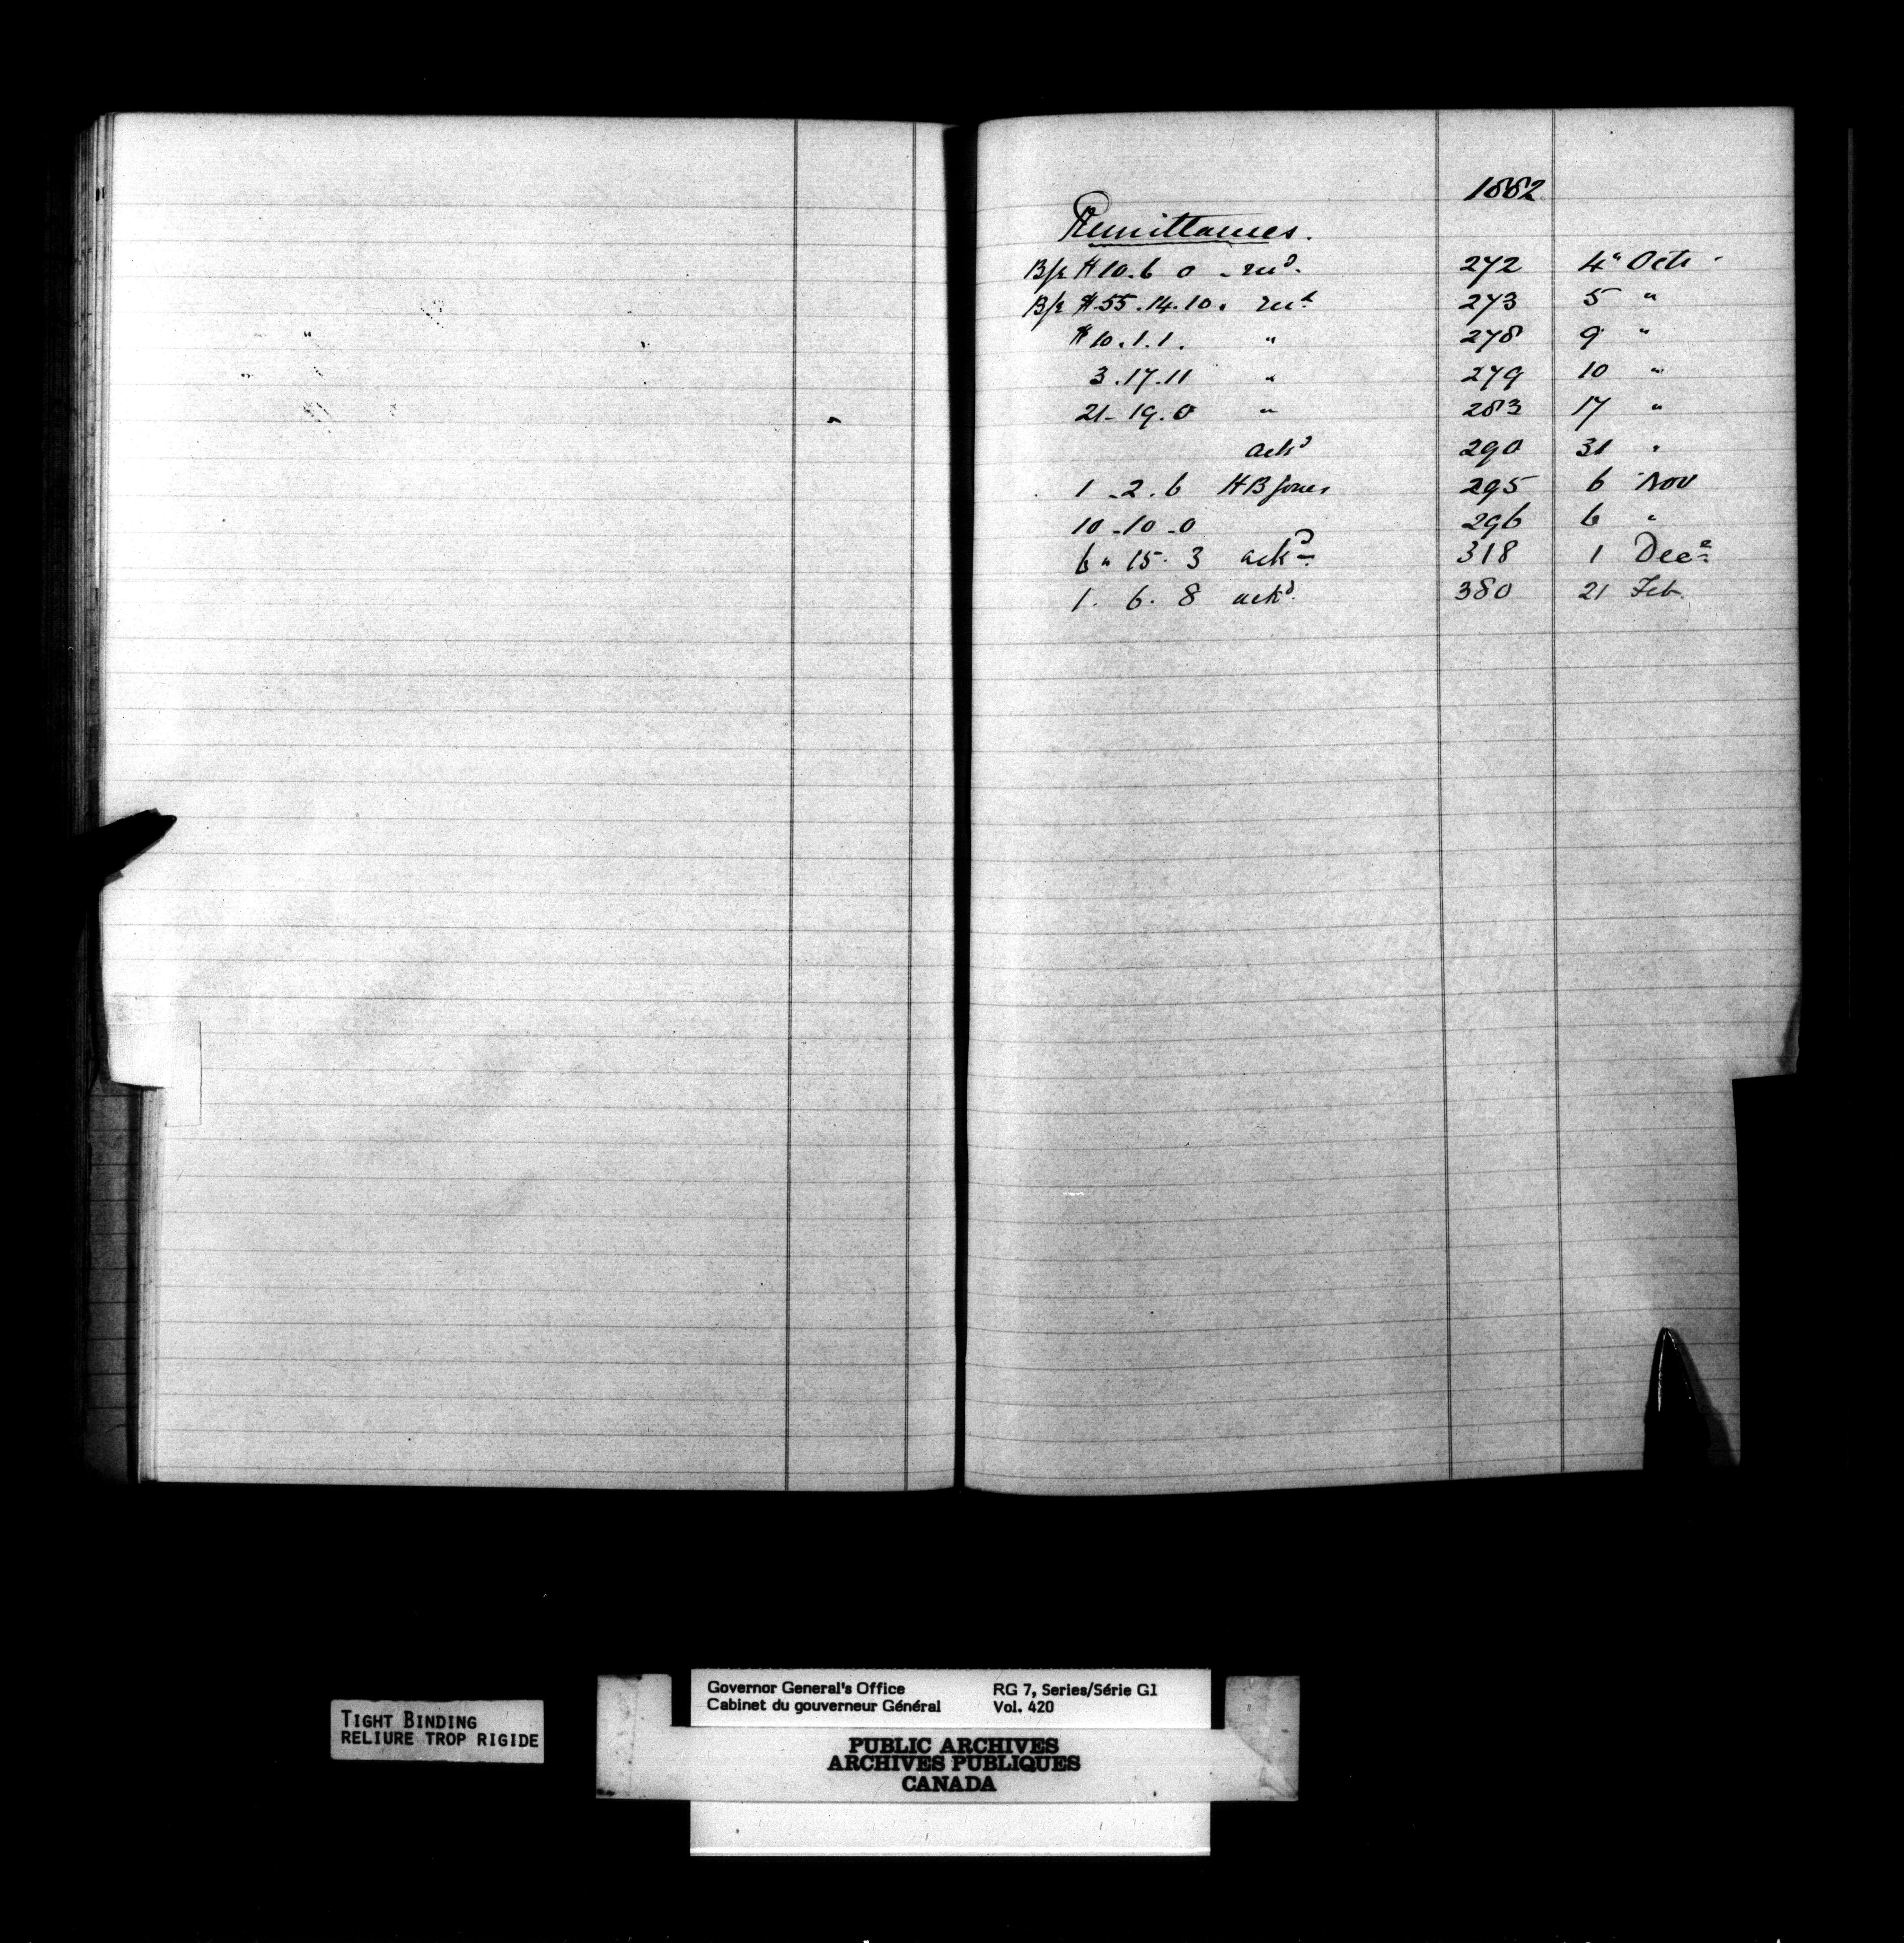 1882
Remittances.
B/E £10.6 0 - recd. 272 4" Octr
B/E £55.14.10. 273 5 "
£10.1.1. " 278 9 "
3.17.11 " 279 10 "
21-19.0 " 283 17 "
ackd 290 31 "
1-2.6 HB Jones 295 6 Nov
10-10-0 296 6 "
6"15.3 ackd. 318 1 Decr
1.6.8 ackd. 380 21 Feb.
TIGHT BINDING
RELIURE TROP RIGIDE
Governor General's Office RG 7, Series/Série G1
Cabinet du gouverneur Général Vol. 420
PUBLIC ARCHIVES
ARCHIVES PUBLIQUES
CANADA